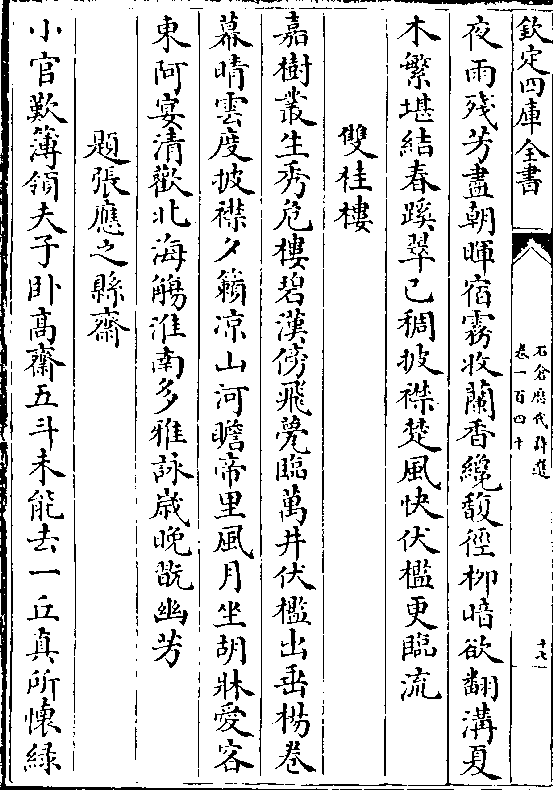 欽定四庫全書
石倉歷代詩選
卷一百四十
十七
夜雨殘芳盡朝暉宿霧收蘭香纔馥徑柳暗欲翻溝夏
木繁堪結春蹊翠已稠披襟楚風快伏檻更臨流
雙桂樓
嘉樹叢生秀危樓碧漢傍飛甍臨萬井伏檻出垂楊卷
幕晴雲度披襟夕籟凉山河瞻帝里風月坐胡牀愛客
東阿宴清歡北海觴淮南多雅詠歲晚翫幽芳
題張應之縣齋
小官歎簿領夫子卧高齋五斗未能去一丘真所懷緑